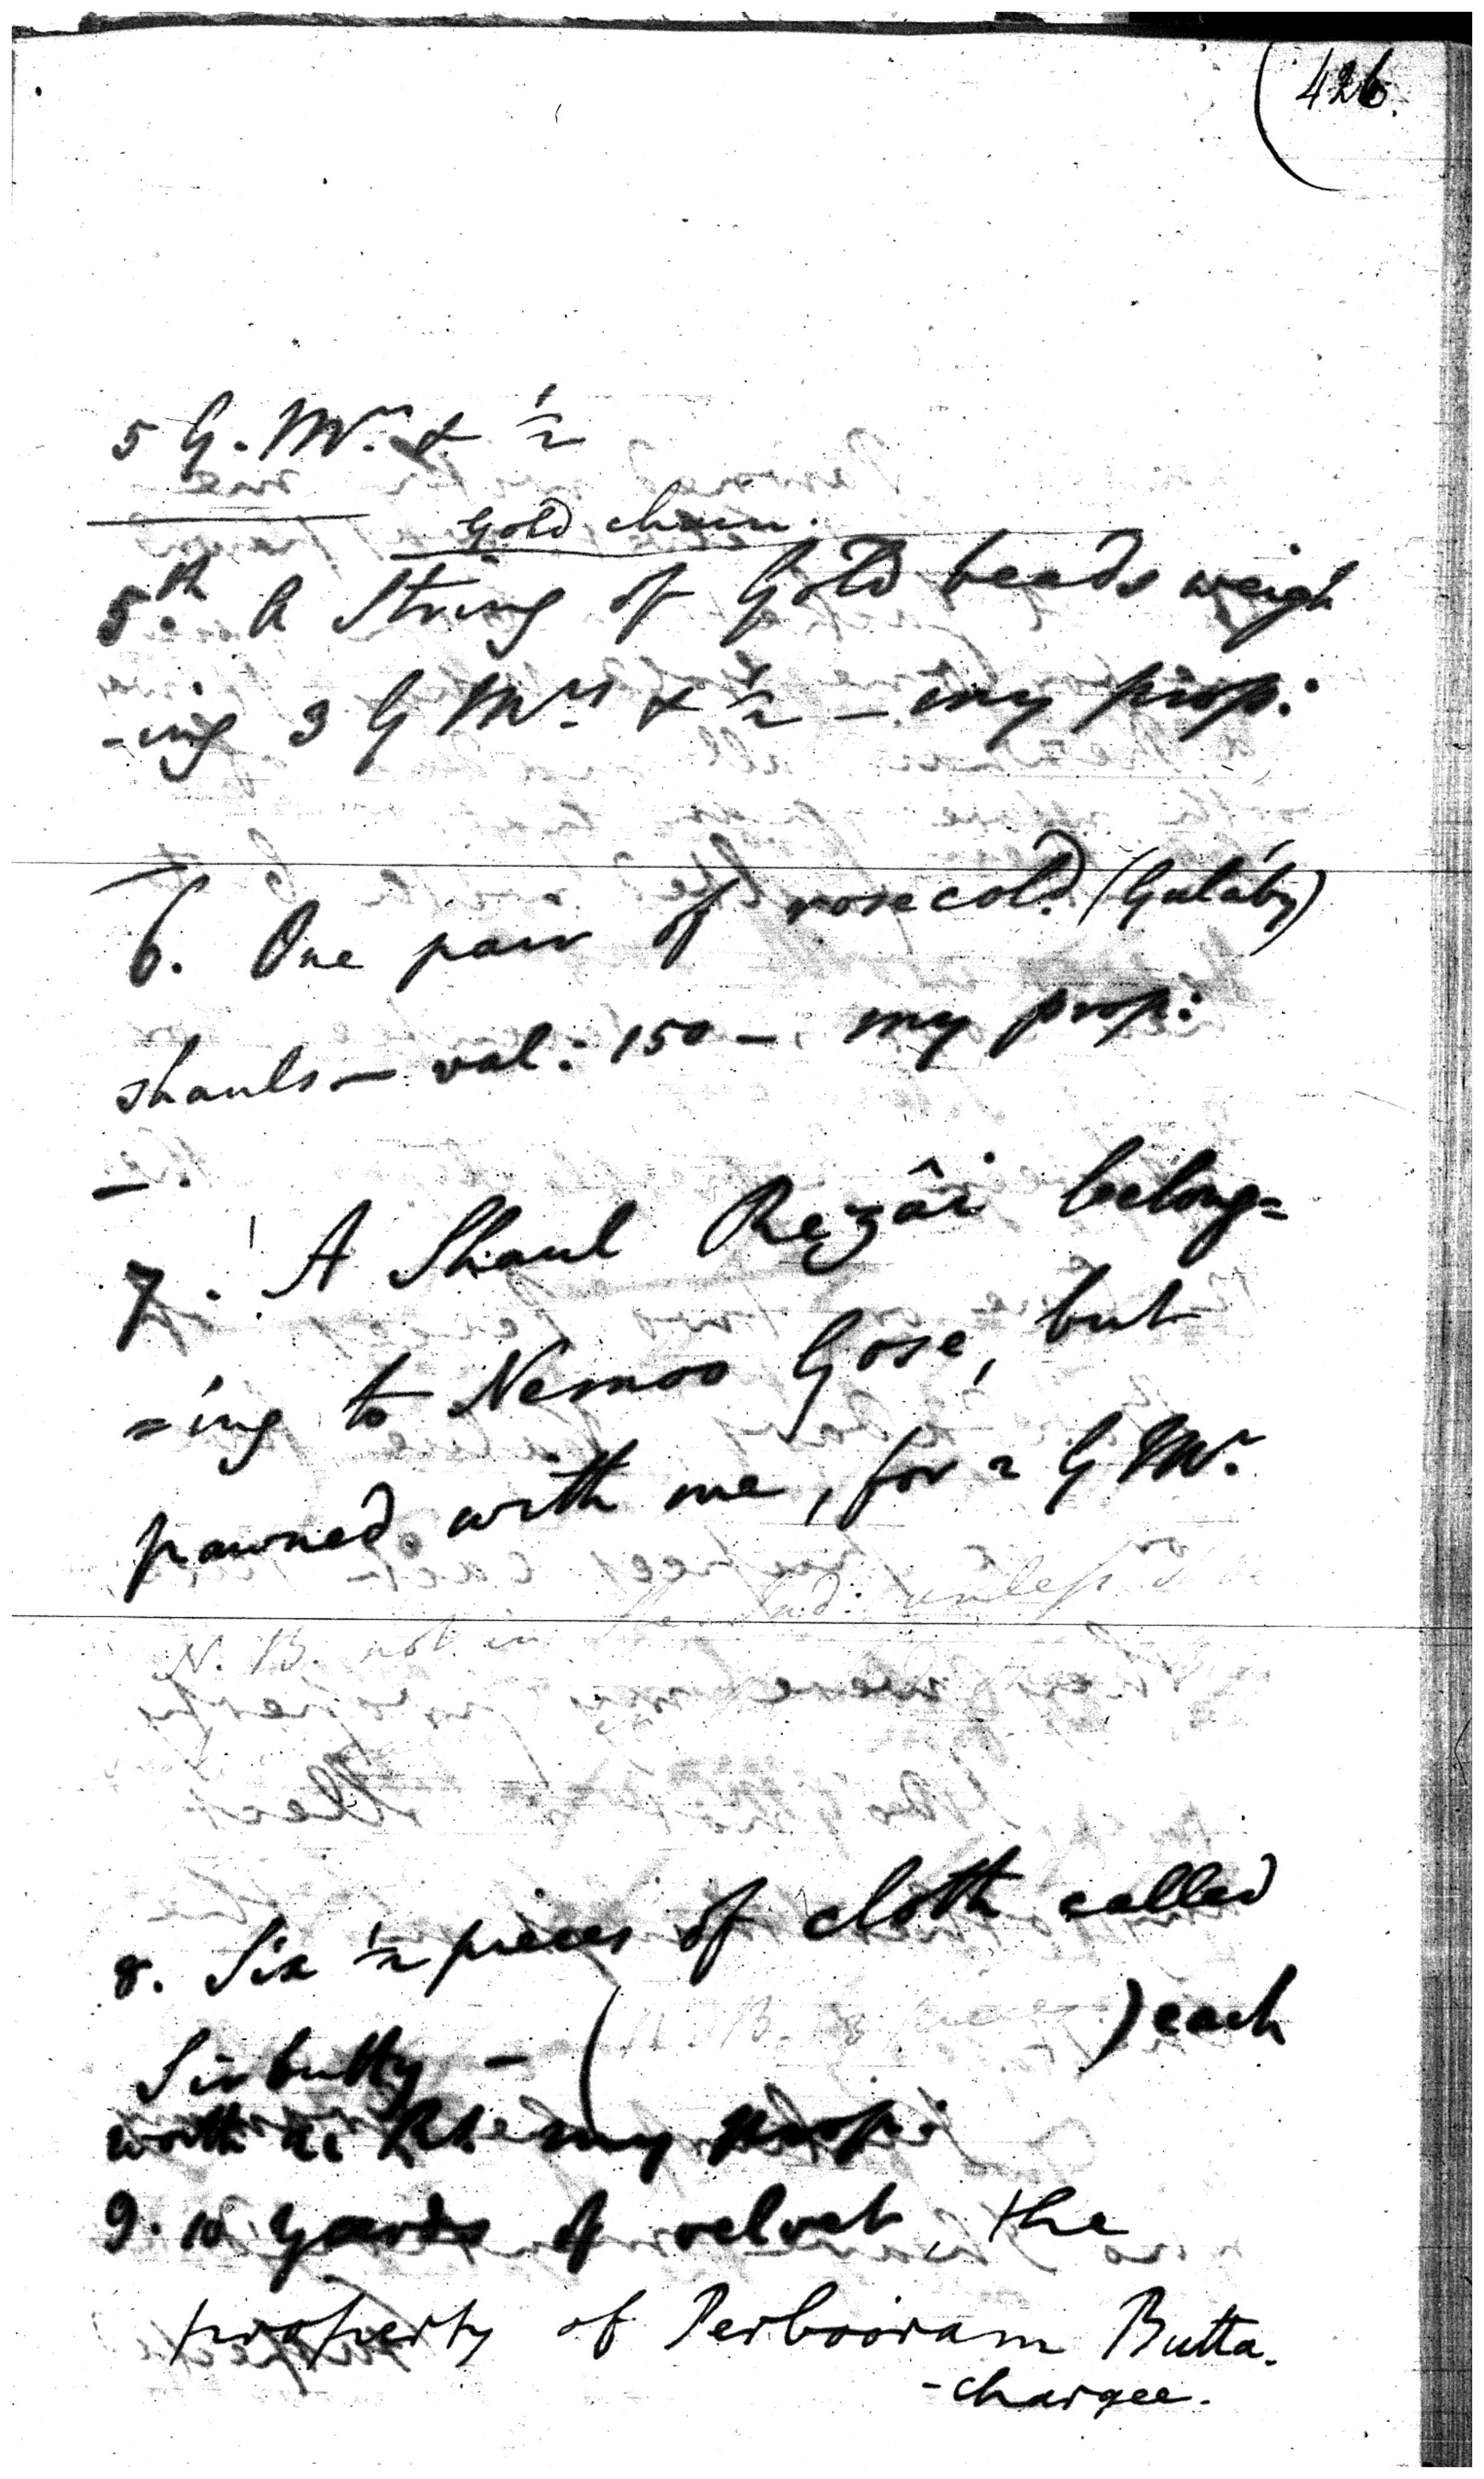 (426.
5 G. Mrs. & 1/2
Gold chain.
5th. A String of Gold beads weigh
-ing 3 G Mrs & 1/2 - my prop:
6. One pair of rosecold. (Guláby)
Shauls - val: 150 - my prop:
7. A Shaul Rezâi belong=
=ing to Nemoo Gose, but
pawned with me, for 2 G Mr.
N. B. not in the unless
8. Six 1/2 pieces of cloth called
Sirbutty - ( N. B. 8 ) each
worth Rs. my prop:
9. 10 Yards of velvet, the
property of Perbooram Butta.
-chargee.